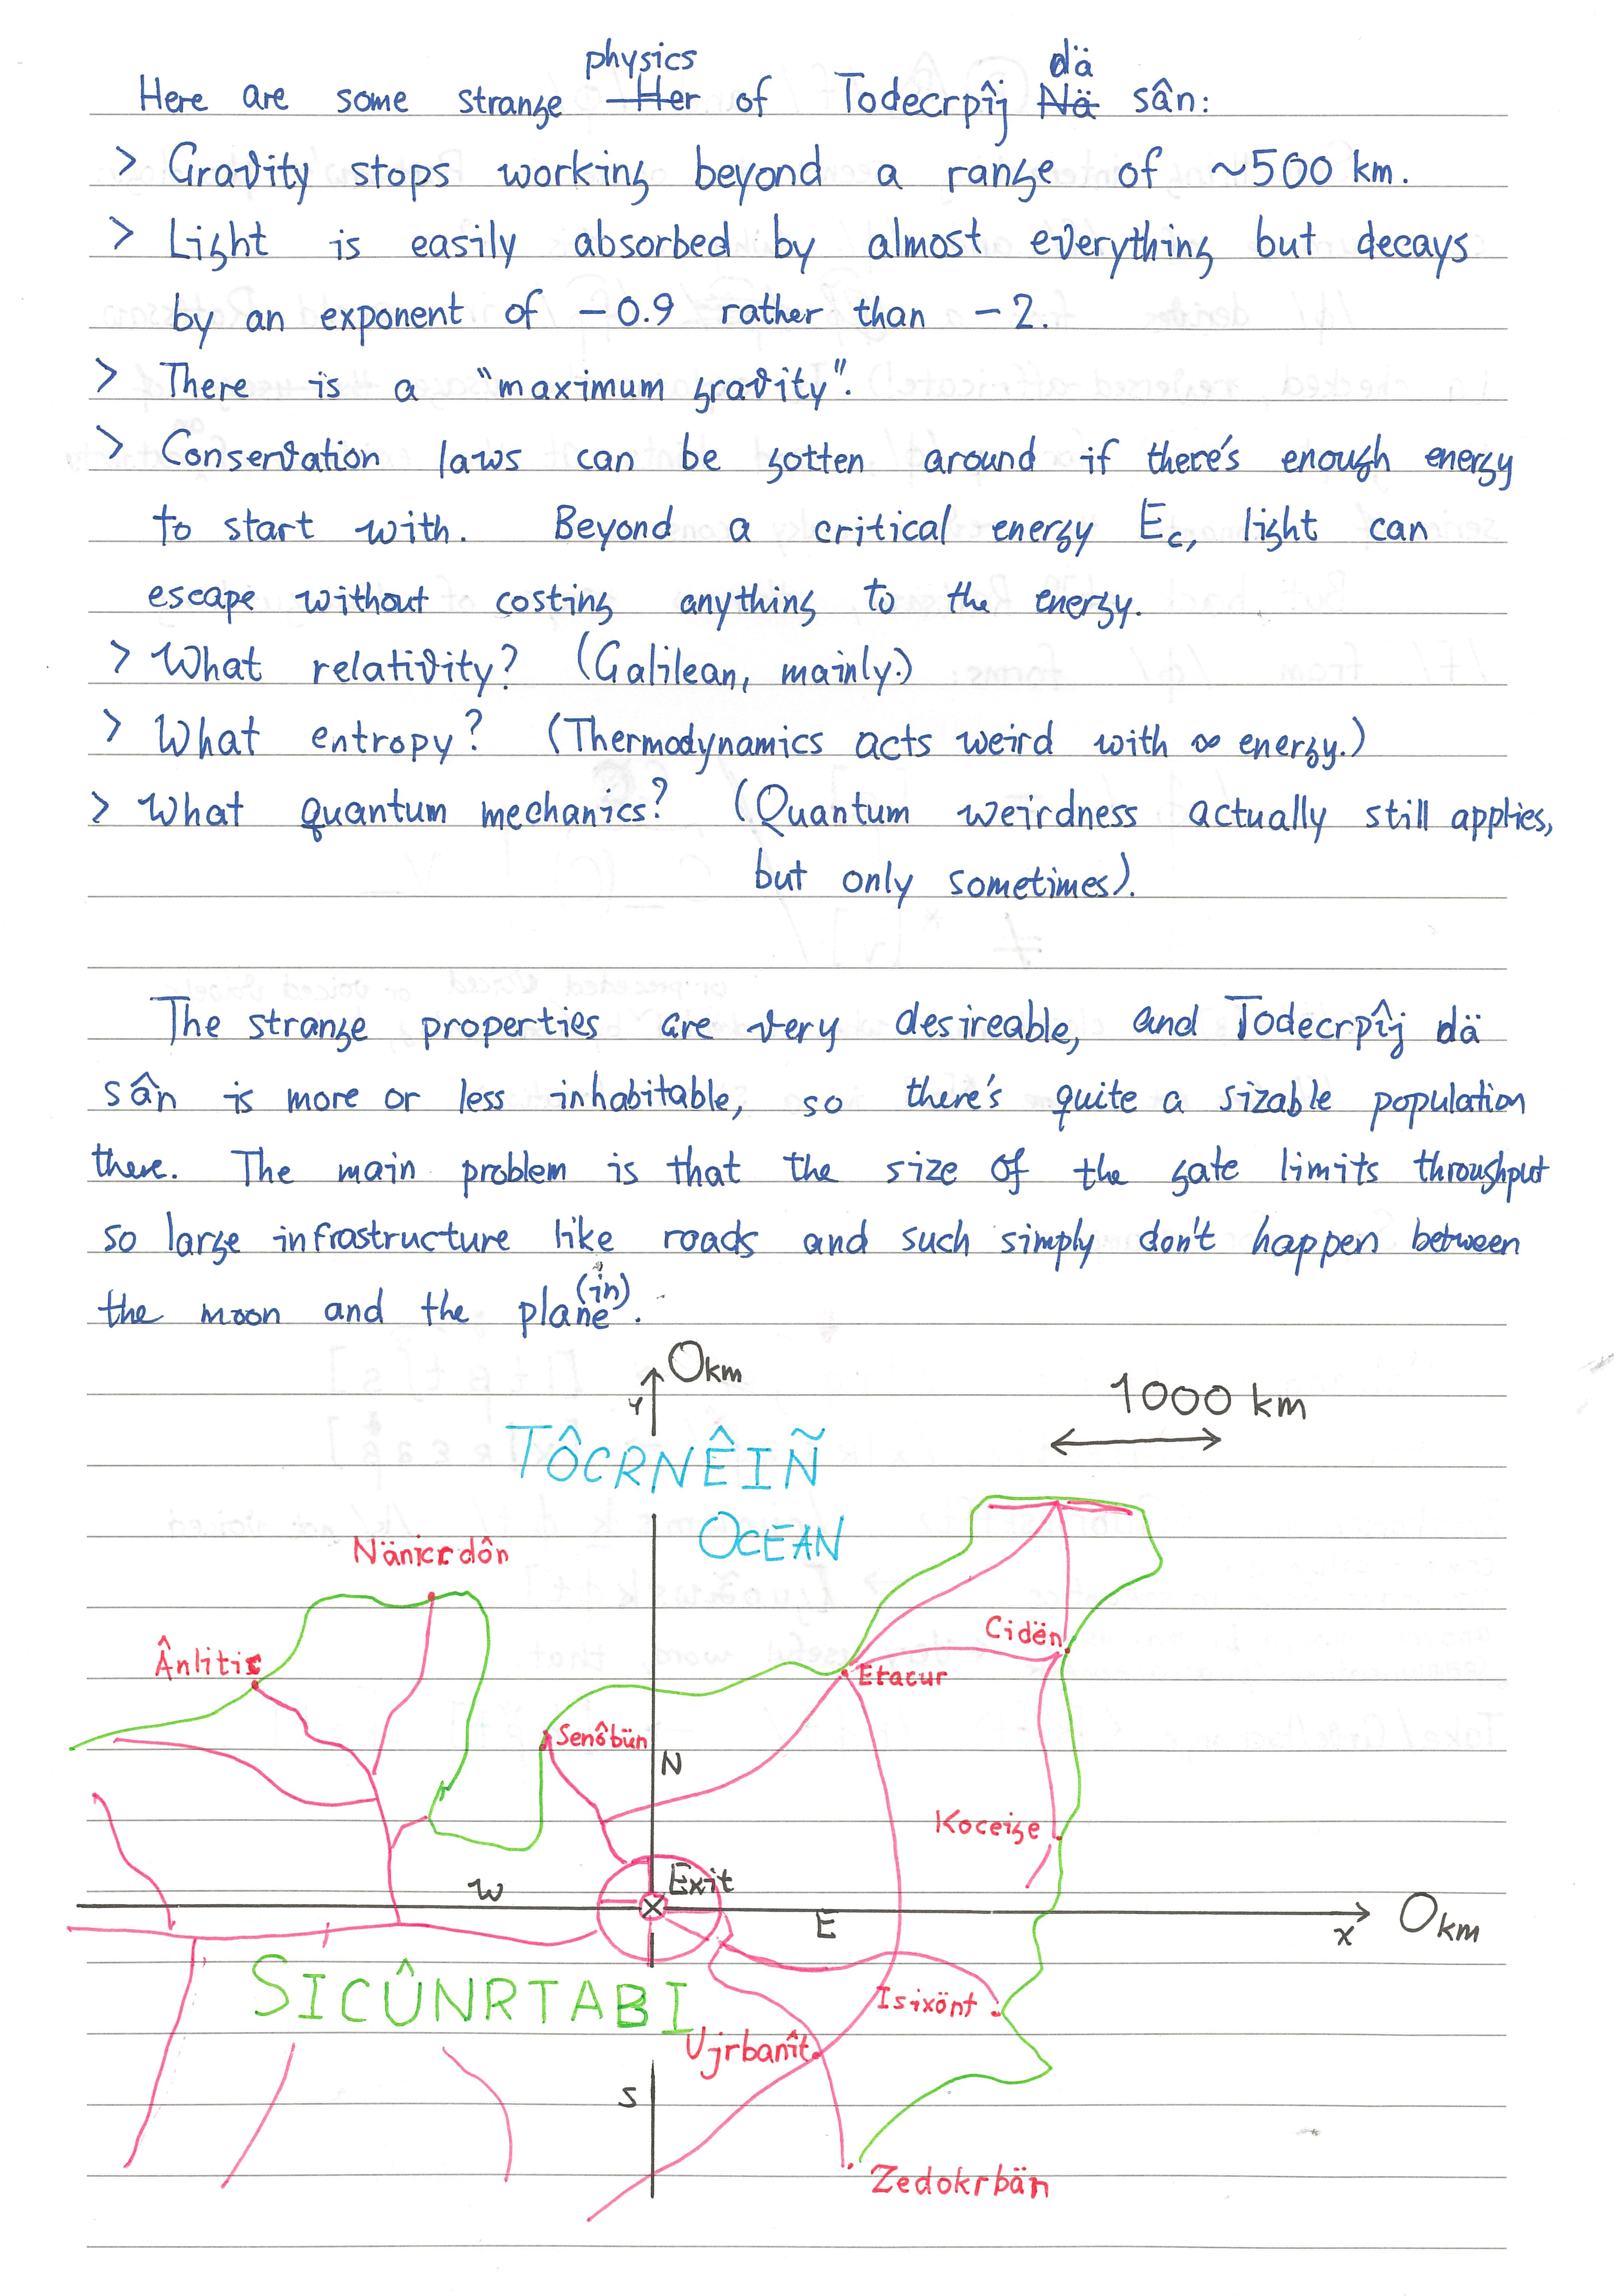 physics dä
Here are some strange Her of Todecrpîj Nä sân:
> Gravity stops working beyond a range of ~500 km.
> Light is easily absorbed by almost everything but decays
by an exponent of -0.9 rather than -2.
> There is a "maximum gravity".
> Conservation laws can be gotten around if there's enough energy
to start with. Beyond a critical energy Ec, light can
escape without costing anything to the energy.
> What relativity? (Galilean, mainly.)
> What entropy? (Thermodynamics acts weird with ∞ energy.)
> What quantum mechanics? (Quantum weirdness actually still applies,
but only sometimes).
The strange properties are very desireable, and Todecrpîj dä
sân is more or less inhabitable, so there's quite a sizable population
there. The main problem is that the size of the gate limits throughput
so large infrastructure like roads and such simply don't happen between
(in)
the moon and the plane.
0km
Y
1000 km
TÔCRNÊIÑ
OCEAN
Nänicrdôn
Cidën
Ânlitic
Etacur
Senôbün
N
Koceige
Exit
W
E
x
0km
SICÛNRTABI
Isixönt
Ujrbanît
S
Zedokrbän